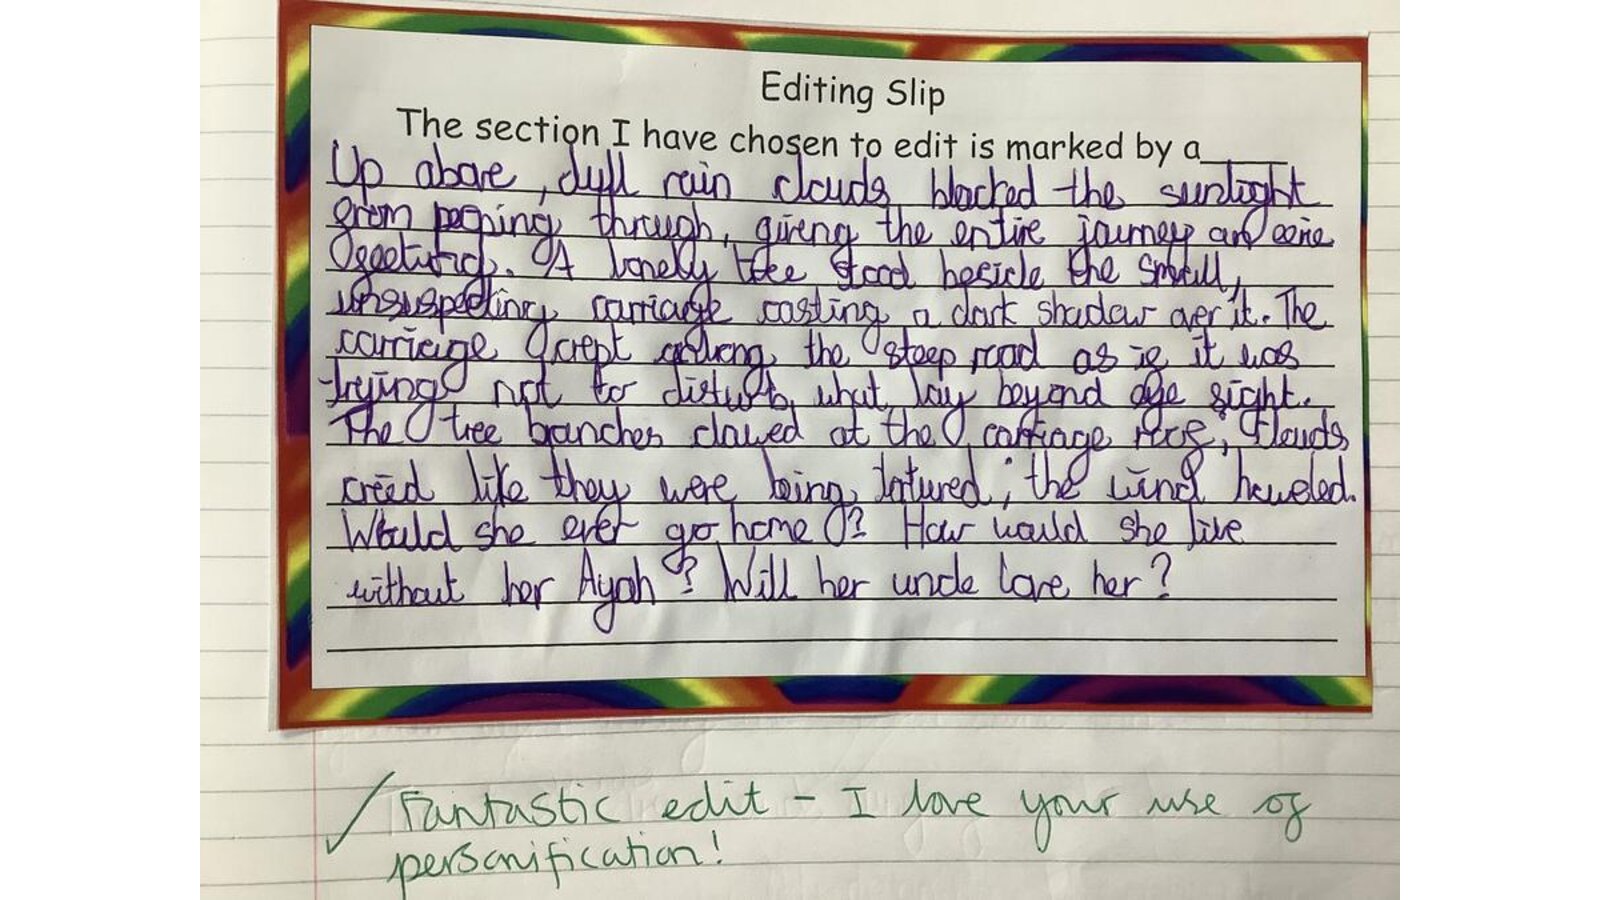 Editing Slip
The section I have chosen to edit is marked by a____
Up above, dull rain clouds blocked the sunlight
from peeping through, giving the entire journey an eerie
feeling. A lonely tree stood beside the small,
unsuspecting carriage casting a dark shadow over it. The
carriage crept along the steep road as if it was
trying not to disturb what lay beyond eye sight.
The tree branches clawed at the carriage roof; clouds
cried like they were being tortured; the wind howeled.
Would she ever go home? How would she live
without her Ayah? Will her uncle love her?
Fantastic edit - I love your use of
personification!